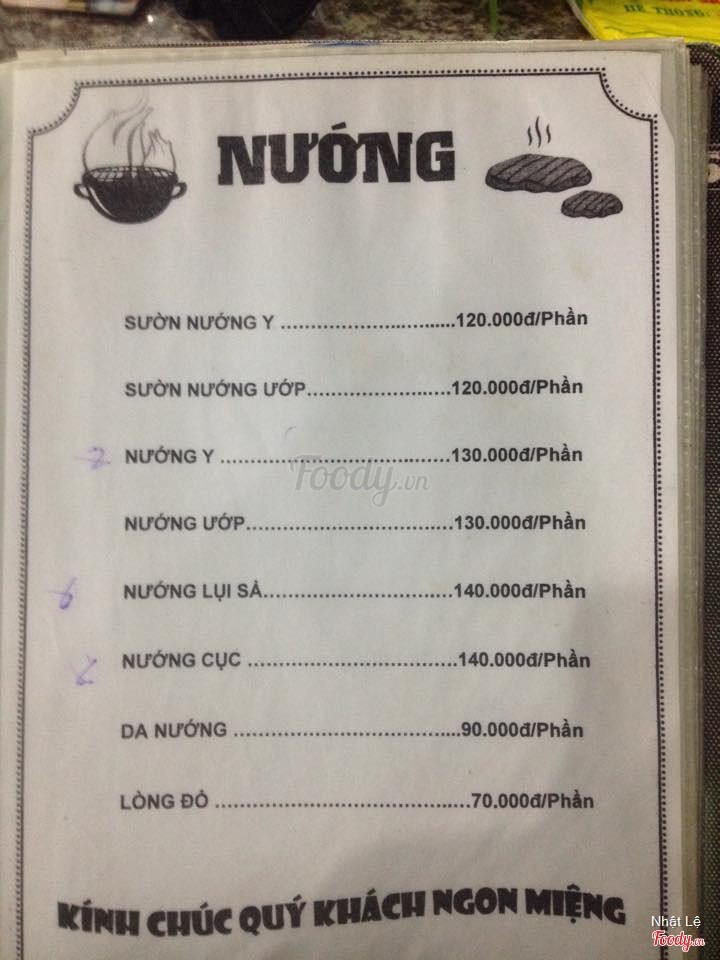 HỆ THỐNG:
NƯỚNG
SƯỜN NƯỚNG Y ..............................120.000đ/Phần
SƯỜN NƯỚNG ƯỚP.........................120.000đ/Phần
NƯỚNG Y ........................................130.000đ/Phần
NƯỚNG ƯỚP....................................130.000đ/Phần
NƯỚNG LỤI SẢ.................................140.000đ/Phần
NƯỚNG CỤC ....................................140.000đ/Phần
DA NƯỚNG .......................................90.000đ/Phần
LÒNG ĐỎ ...........................................70.000đ/Phần
KÍNH CHÚC QUÝ KHÁCH NGON MIỆNG
Foody.vn
Nhật Lệ
Foody.vn